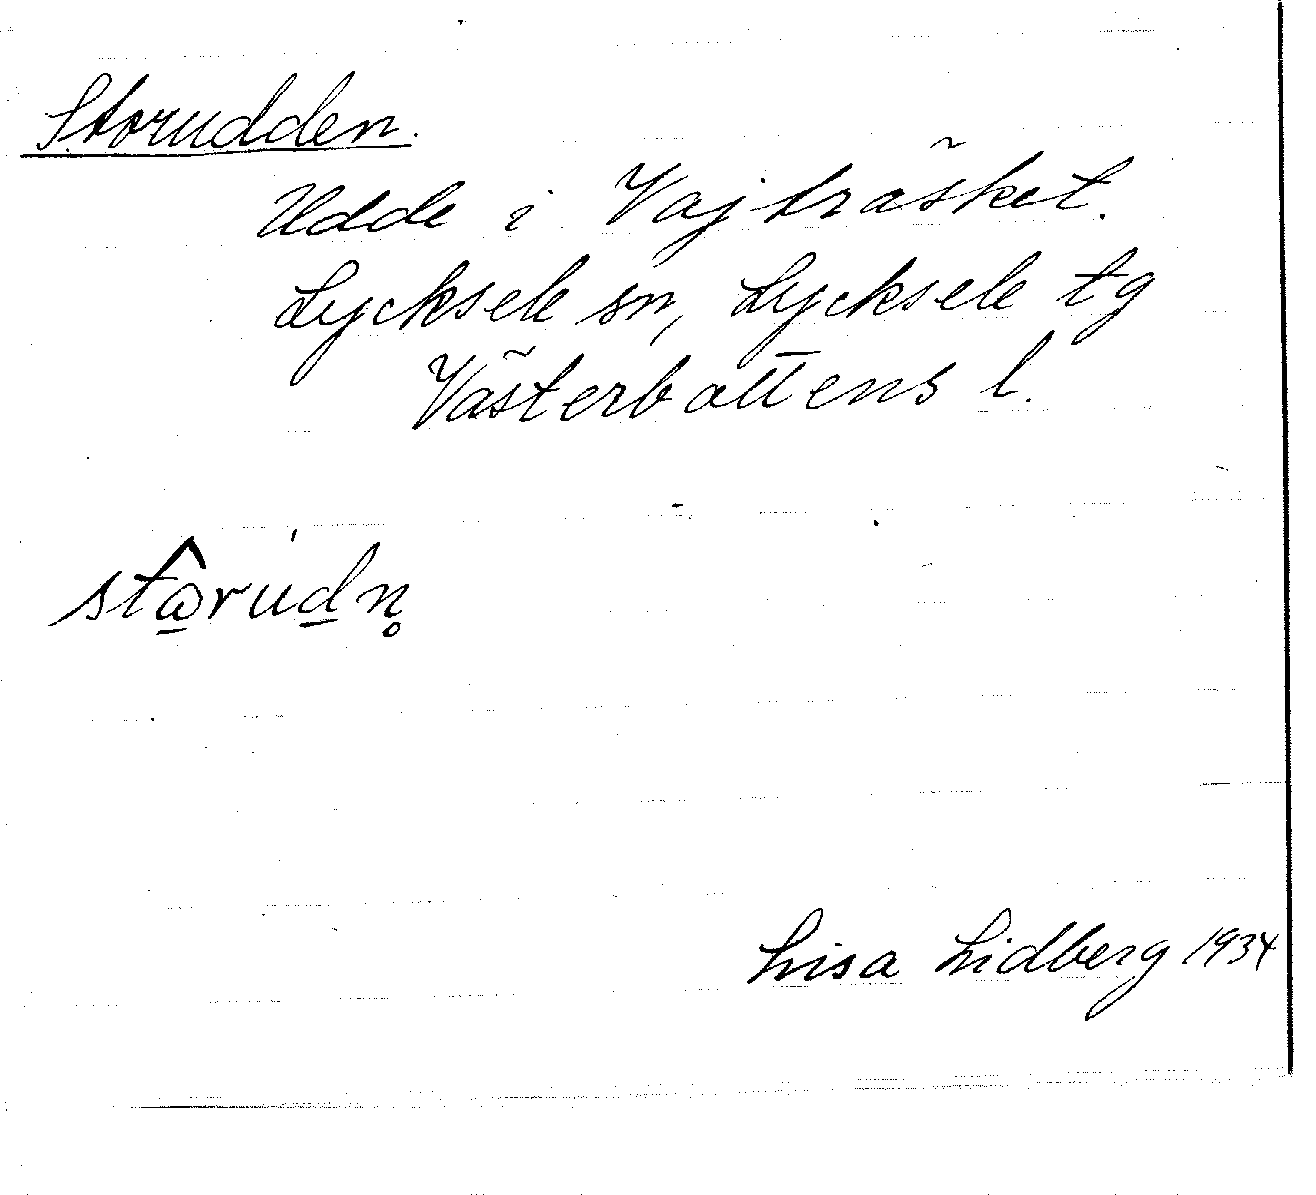 Storudden.
Udde i Vajträsket.
Lycksele sn, Lycksele tg
Västerbottens l.
Lisa Lidberg 1934